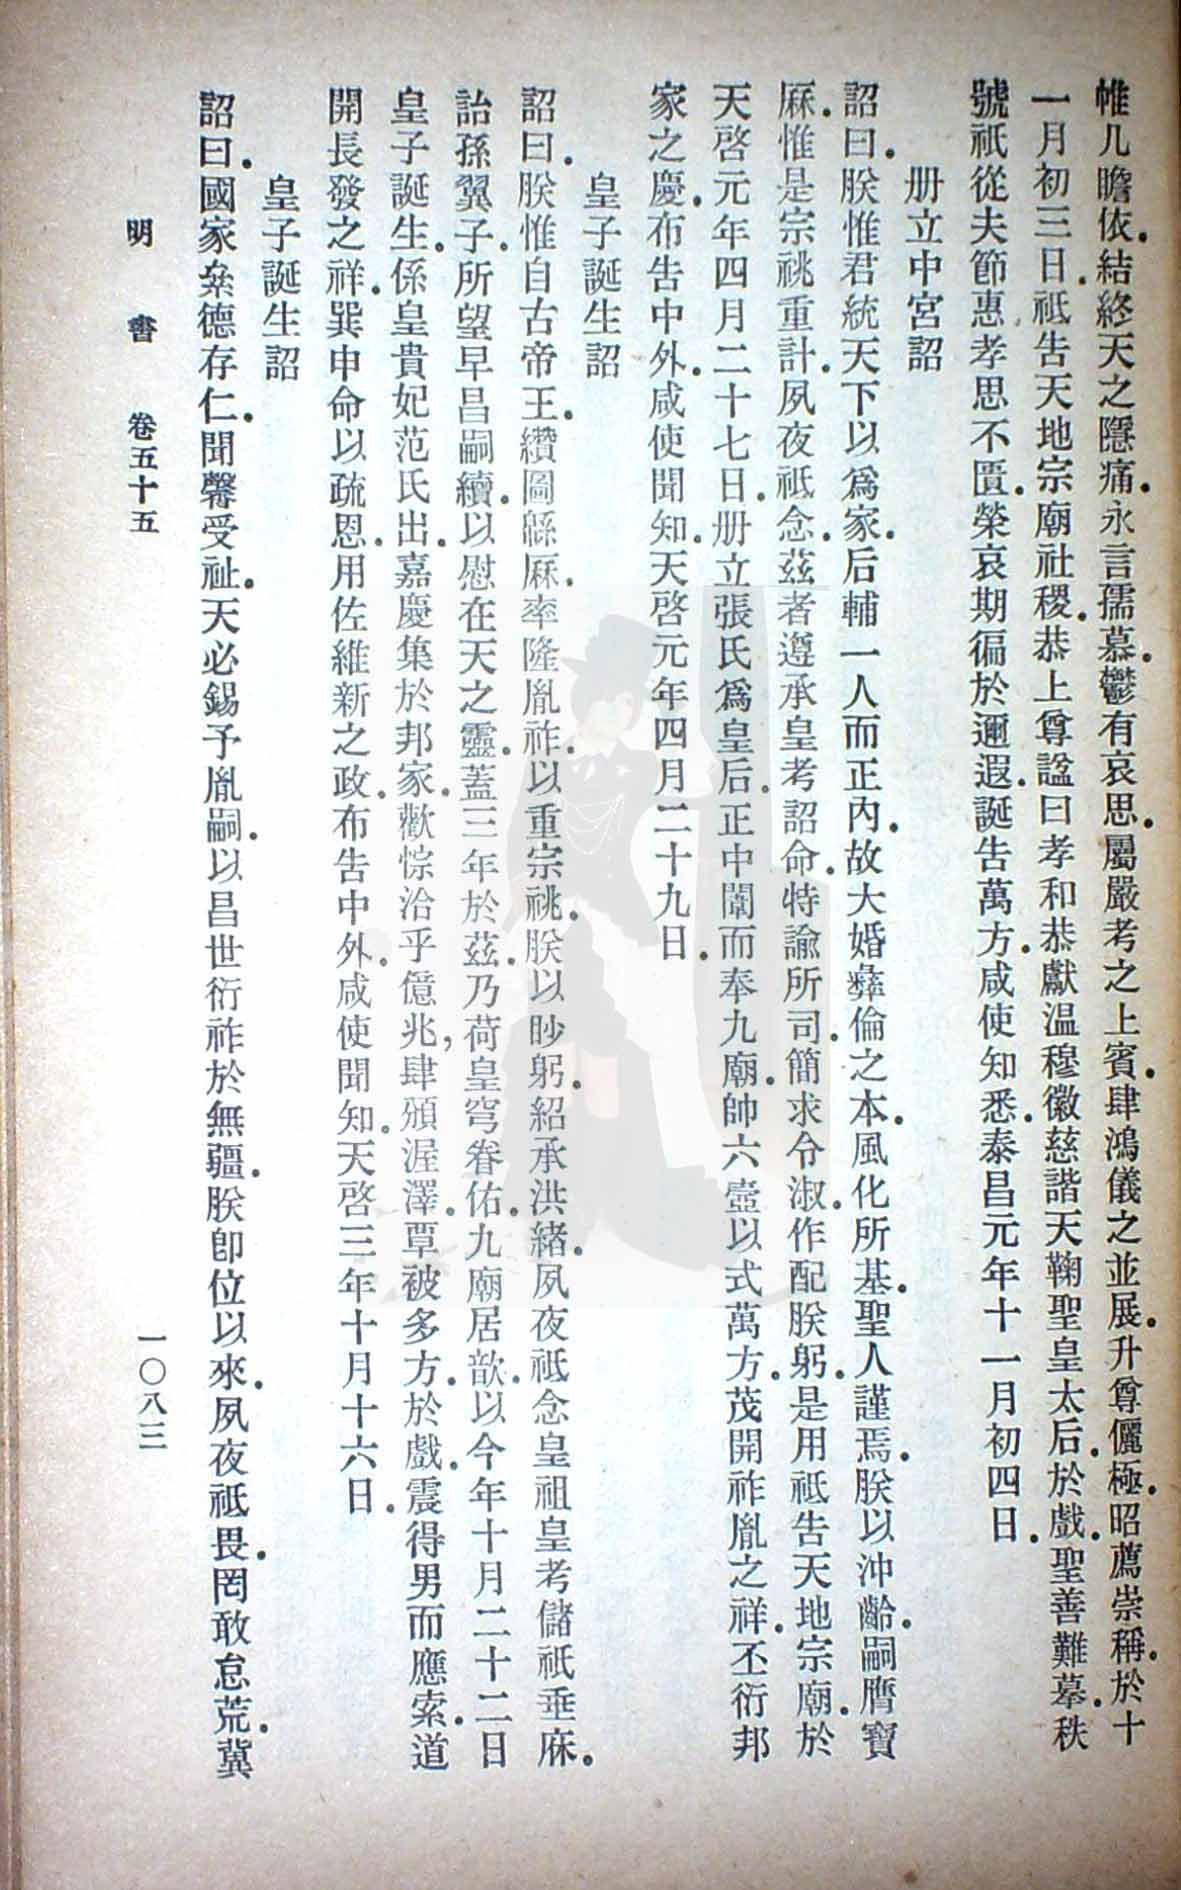 帷几瞻依．結終天之隱痛．永言孺慕．鬱有哀思．屬嚴考之上賓．肆鴻儀之並展．升尊儷極．昭薦崇稱．於十
一月初三日．祗告天地宗廟社稷．恭上尊諡曰孝和恭獻溫穆徽慈諧天鞠聖皇太后．於戲．聖善難摹．秩
號祇從夫節惠．孝思不匱．榮哀期徧於邇遐．誕告萬方．咸使知悉．泰昌元年十一月初四日．
册立中宮詔
詔曰．朕惟君統天下以爲家．后輔一人而正內．故大婚彝倫之本．風化所基．聖人謹焉．朕以沖齡．嗣膺寶
厤．惟是宗祧重計．夙夜祗念．茲者遵承皇考詔命．特諭所司．簡求令淑．作配朕躬．是用祗告天地宗廟．於
天啓元年四月二十七日．册立張氏爲皇后．正中闈而奉九廟．帥六壼以式萬方．茂開祚胤之祥．丕衍邦
家之慶．布告中外．咸使聞知．天啓元年四月二十九日．
皇子誕生詔
詔曰．朕惟自古帝王．纘圖繇厤．率隆胤祚．以重宗祧．朕以眇躬．紹承洪緒．夙夜祗念皇祖皇考儲祇垂庥．
詒孫翼子．所望早昌嗣續．以慰在天之靈．蓋三年於茲．乃荷皇穹眷佑．九廟居歆．以今年十月二十二日
皇子誕生．係皇貴妃范氏出．嘉慶集於邦家．歡悰洽乎億兆，肆頒渥澤．覃被多方．於戲．震得男而應索．道
開長發之祥．巽申命以疏恩．用佐維新之政．布告中外．咸使聞知．天啓三年十月十六日．
皇子誕生詔
詔曰．國家絫德存仁．聞馨受祉．天必錫予胤嗣．以昌世衍祚於無疆．朕卽位以來．夙夜祗畏．罔敢怠荒．冀
明書 卷五十五 一〇八三